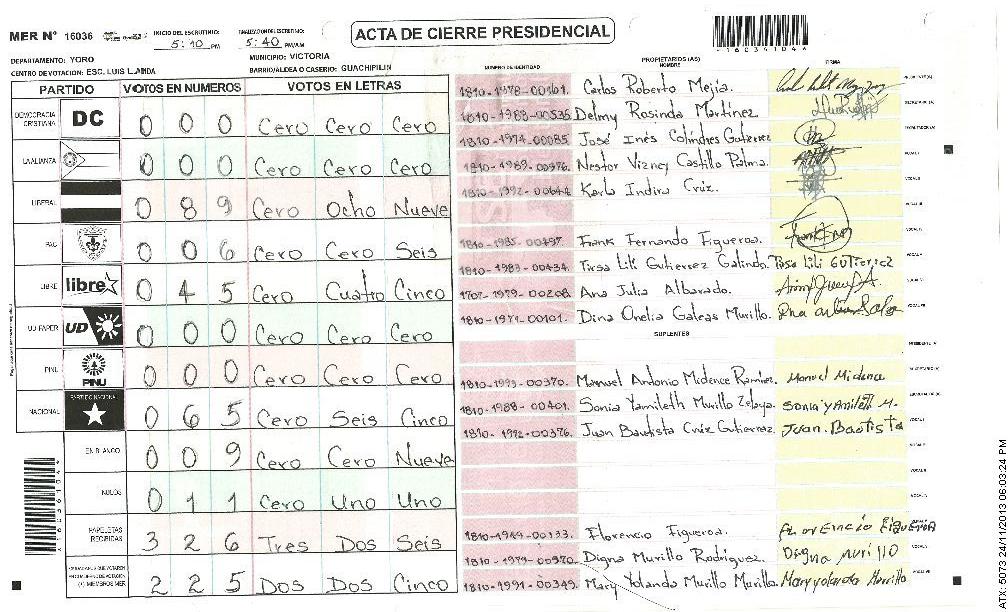 MER Nº 16036
INICIO DEL ESCRUTINIO: 5:10 PM
FINALIZACION DEL ESCRUTINIO: 5:40 PM/AM
ACTA DE CIERRE PRESIDENCIAL
DEPARTAMENTO: YORO
MUNICIPIO: VICTORIA
CENTRO DE VOTACION: ESC. LUIS LANDA
BARRIO/ALDEA O CASERIO: GUACHIPILIN
PARTIDO VOTOS EN NUMEROS VOTOS EN LETRAS
DEMOCRACIA CRISTIANA DC 0 0 0 Cero Cero Cero
LA ALIANZA 0 0 0 Cero Cero Cero
LIBERAL 0 8 9 Cero Ocho Nueve
PAC 0 0 6 Cero Cero Seis
LIBRE libre 0 4 5 Cero Cuatro Cinco
UD-FAPER UD 0 0 0 Cero Cero Cero
PINU PINU 0 0 0 Cero Cero Cero
NACIONAL PARTIDO NACIONAL 0 6 5 Cero Seis Cinco
EN BLANCO 0 0 9 Cero Cero Nueve
NULOS 0 1 1 Cero Uno Uno
PAPELETAS RECIBIDAS 3 2 6 Tres Dos Seis
2 2 5 Dos Dos Cinco
NUMERO DE IDENTIDAD PROPIETARIOS (AS) NOMBRE FIRMA
Carlos Roberto Mejia.
Delmy Rosinda Martinez
1810-1974-00085 José Inés Colindres Gutierrez
Nestor Vizney Castillo Palma.
Karla Indira Cruz.
1810-1985-00497. Frank Fernando Figueroa.
1810-1983-00434. Tirsa Lili Gutierrez Galindo. Tirsa Lili Gutierrez
1707-1979-00208 Ana Julia Albarado.
1810-1971-00101. Dina Onelia Galeas Murillo.
SUPLENTES
1810-1993-00370. Manuel Antonio Midence Ramirez. Manuel Midence
1810-1988-00401. Sonia Yamileth Murillo Zelaya. Sonia Yamileth M.
1810-1992-00376. Juan Bautista Cruz Gutierrez. Juan Bautista
1810-1949-00133. Florencio Figueroa.
1810-1979-00570. Digna Murillo Rodriguez. Digna Murillo
1810-1991-00349. Mary Yolanda Murillo Murillo. Mary Yolanda Murillo
ATX-5073 24/11/2013 06:03:24 PM